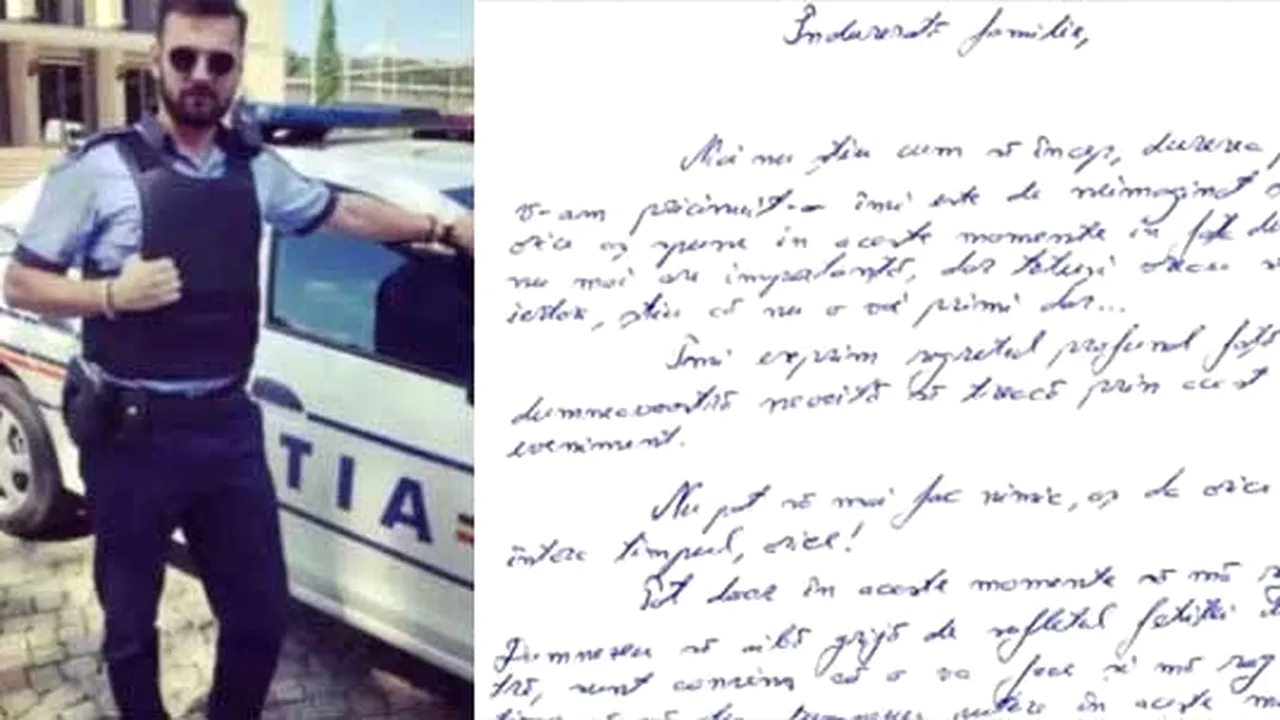 TIA
Îndurerată familie,
Mai nu știu cum să încep, durerea
v-am pricinuit-o îmi este de neimaginat
orice aș spune în aceste momente în fața
nu mai are importanță, dar totuși
iertare, știu că nu o voi primi dar...
Îmi exprim regretul profund față
dumneavoastră nevoită să treacă prin acest
eveniment.
Nu pot să mai fac nimic, aș da orice
întorc timpul, orice!
Pot doar în aceste momente să mă
Dumnezeu să aibă grijă de sufletul fetiței
sunt convins că o va face și mă rog
să Dumnezeu putere în aceste